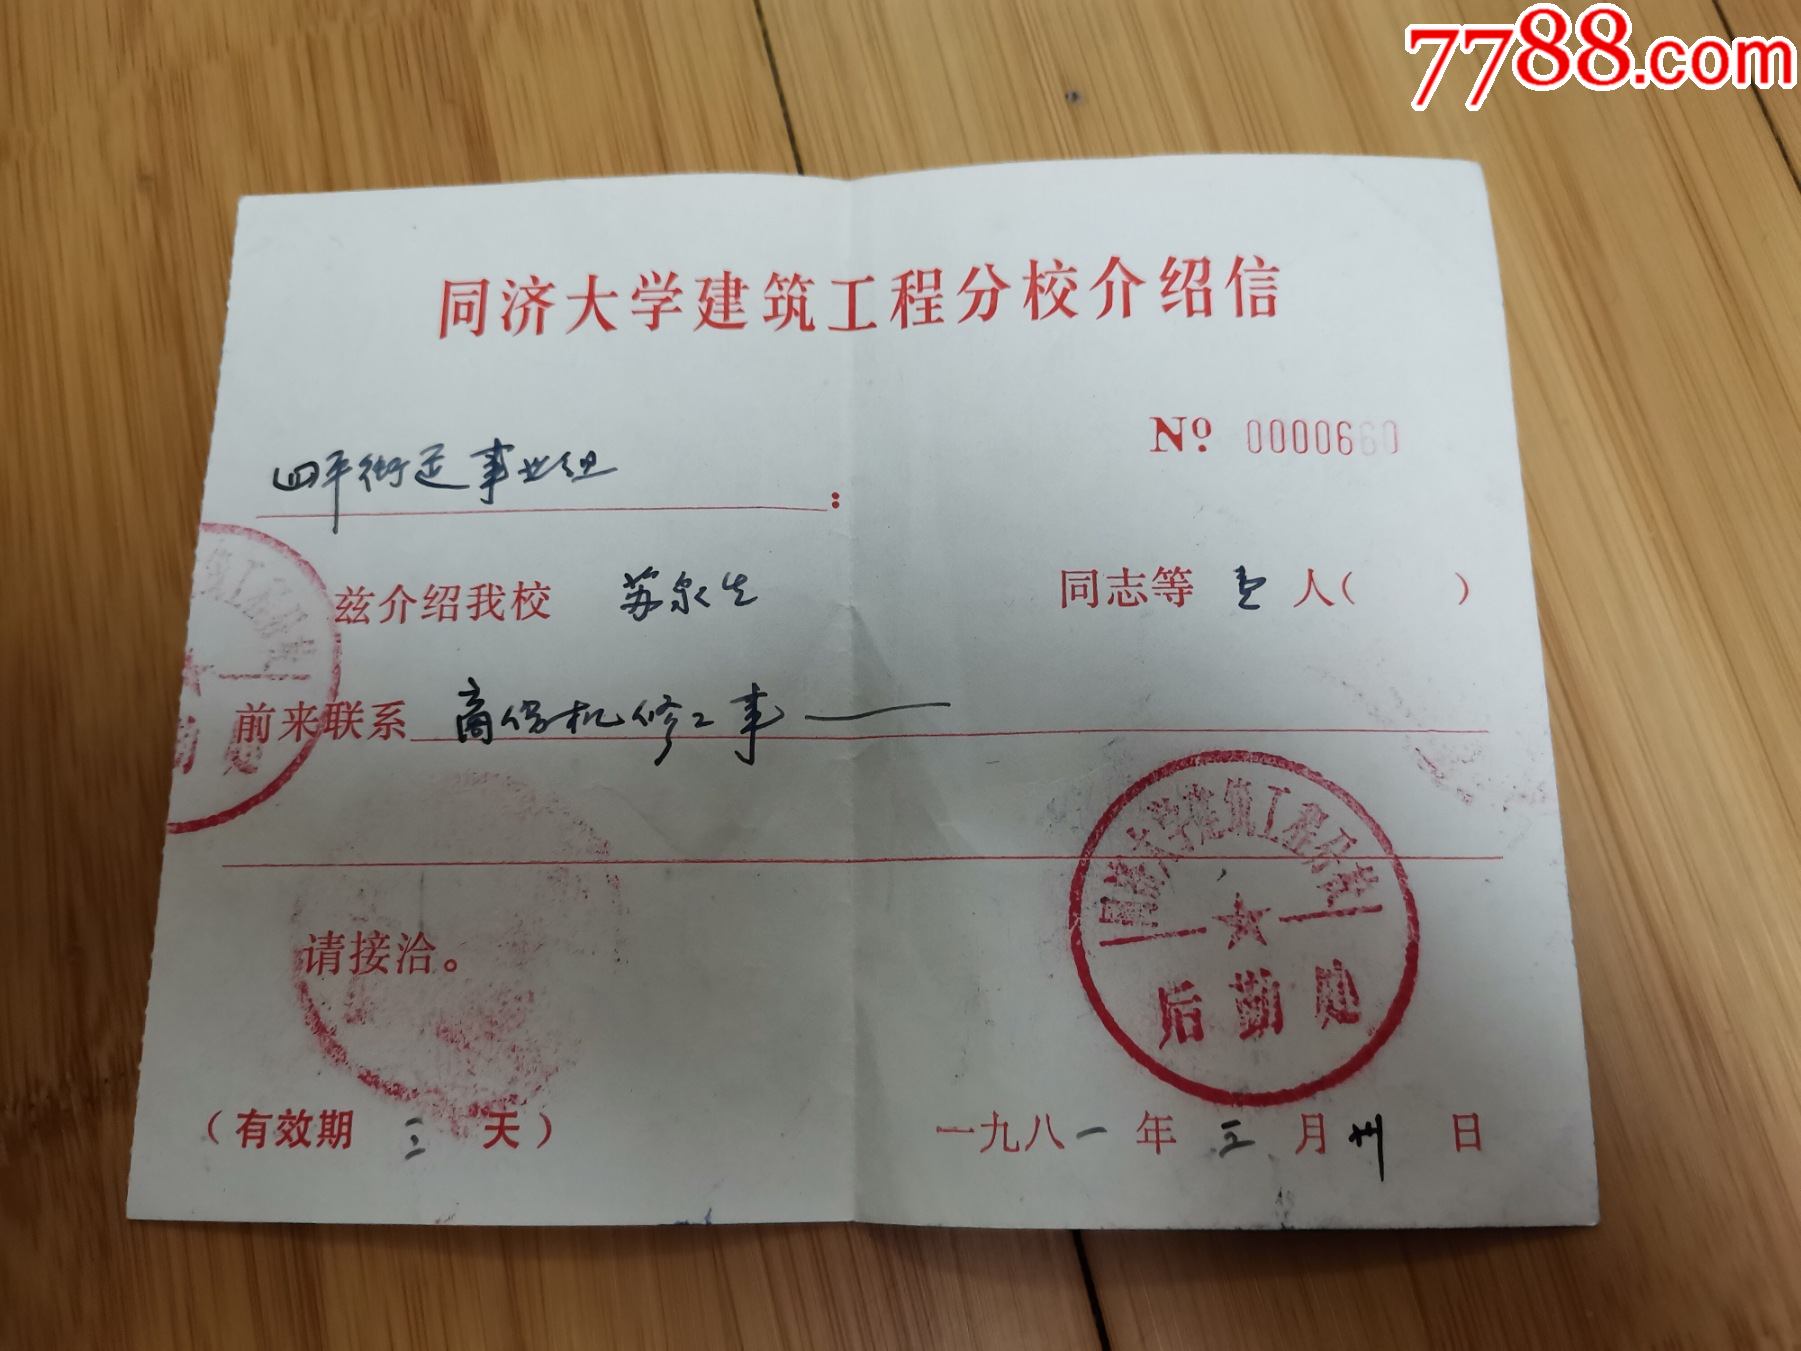 7788.com
同济大学建筑工程分校介绍信
№ 0000660
四平街道事业组:
兹介绍我校 苏泉生 同志等 壹人( )
前来联系 商修机修工事
请接洽。
同济大学建筑工程分校
后勤处
(有效期 三 天)
一九八一年 三 月 卅 日